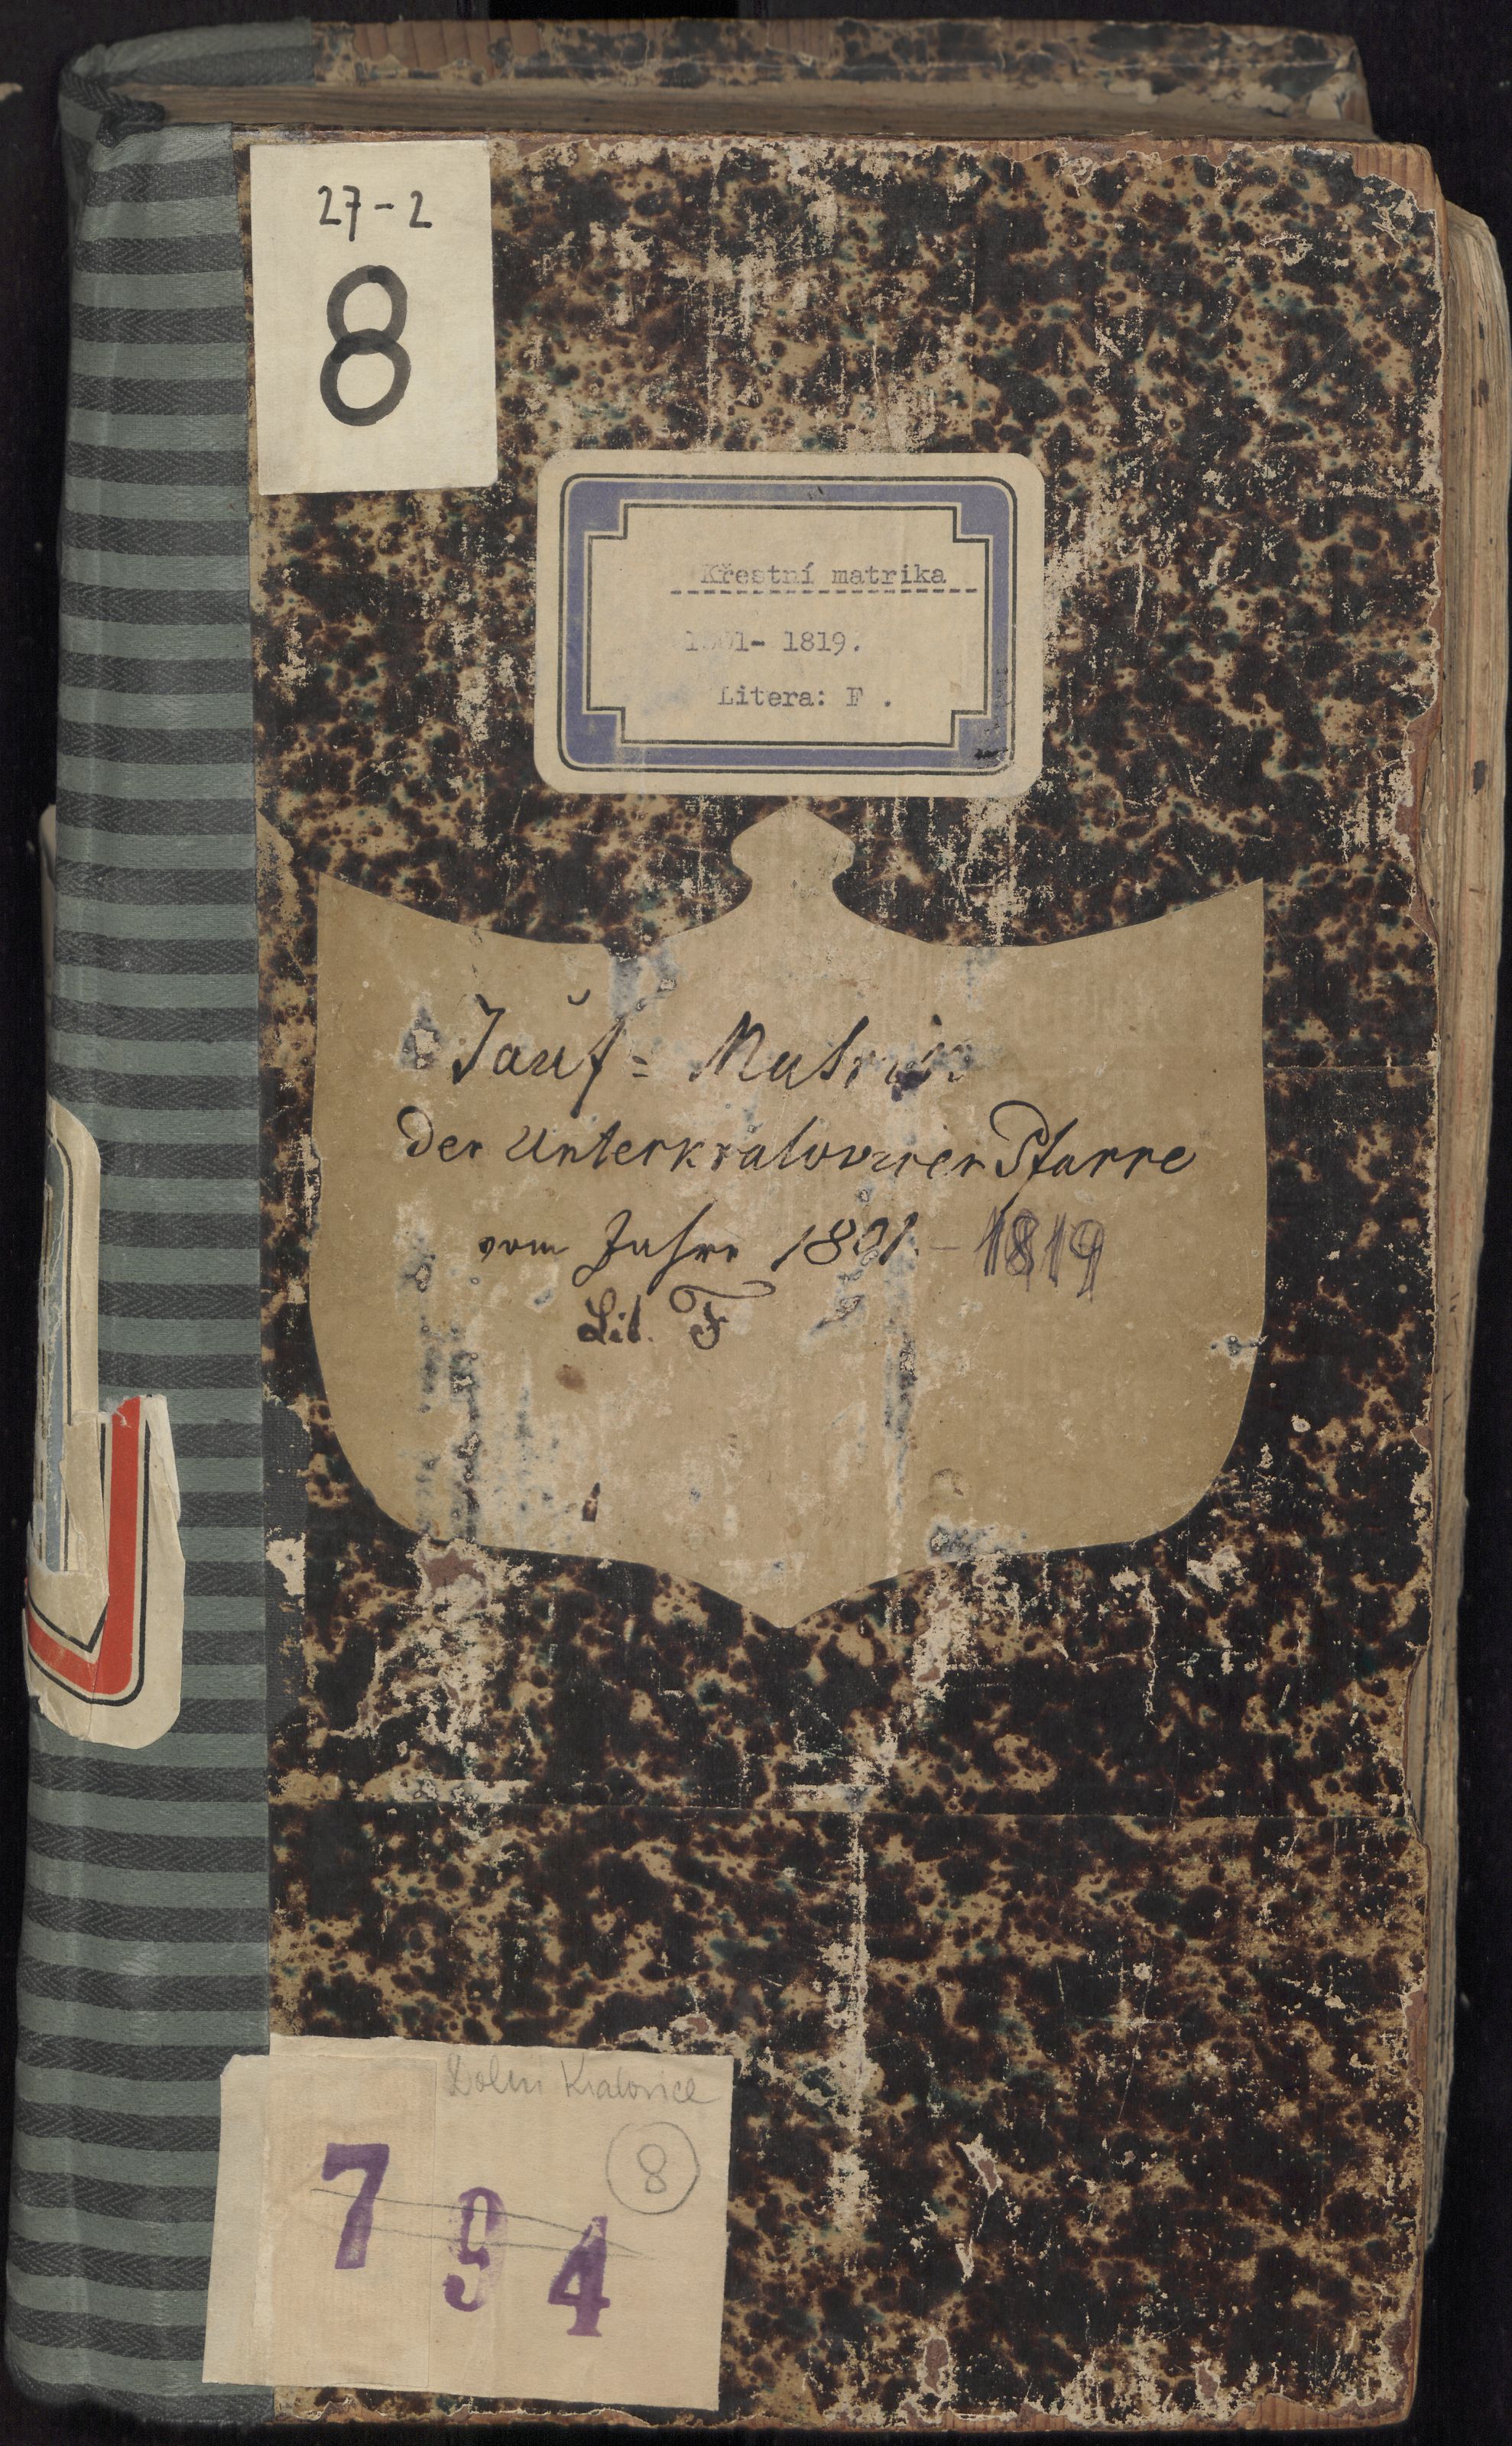 27-2
8
Křestní matrika
1801- 1819.
Litera: F .
Tauf = Matrik
der Unterkralowitzer Pfarre
vom Jahre 1801 - 1819
Lit. F
Dolní Kralovice
8
794